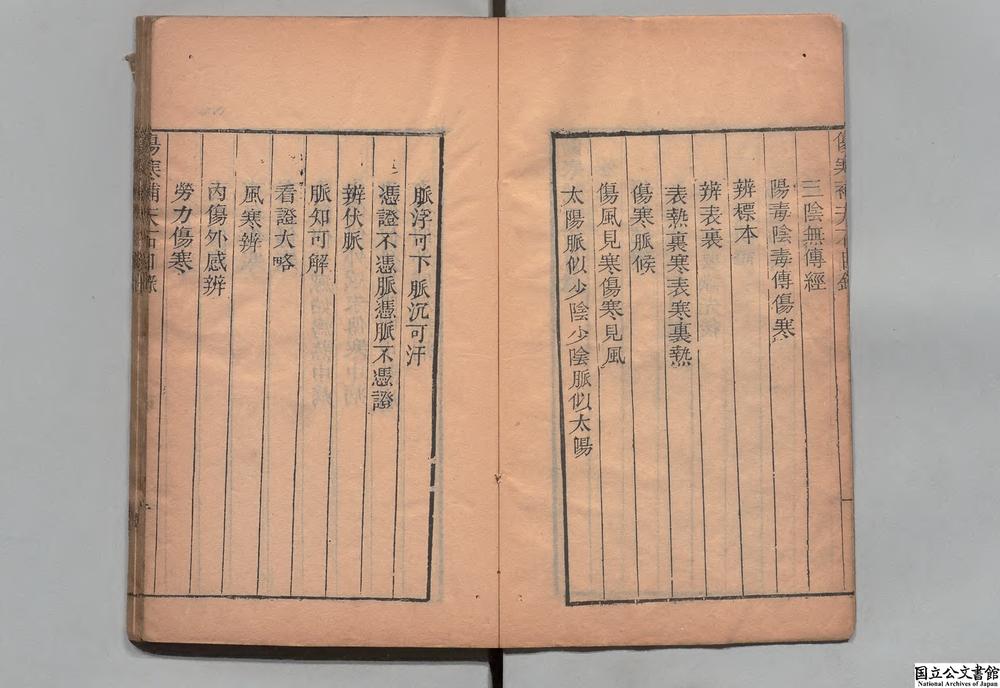 三陰無傳經
陽毒陰毒傳傷寒
辨標本
辨表裏
表熱裏寒表寒裏熱
傷寒脈候
傷風見寒傷寒見風
太陽脈似少陰少陰脈似太陽
脈浮可下脈沉可汗
憑證不憑脈憑脈不憑證
辨伏脈
脈知可解
看證大略
風寒辨
內傷外感辨
勞力傷寒
国立公文書館
National Archives of Japan